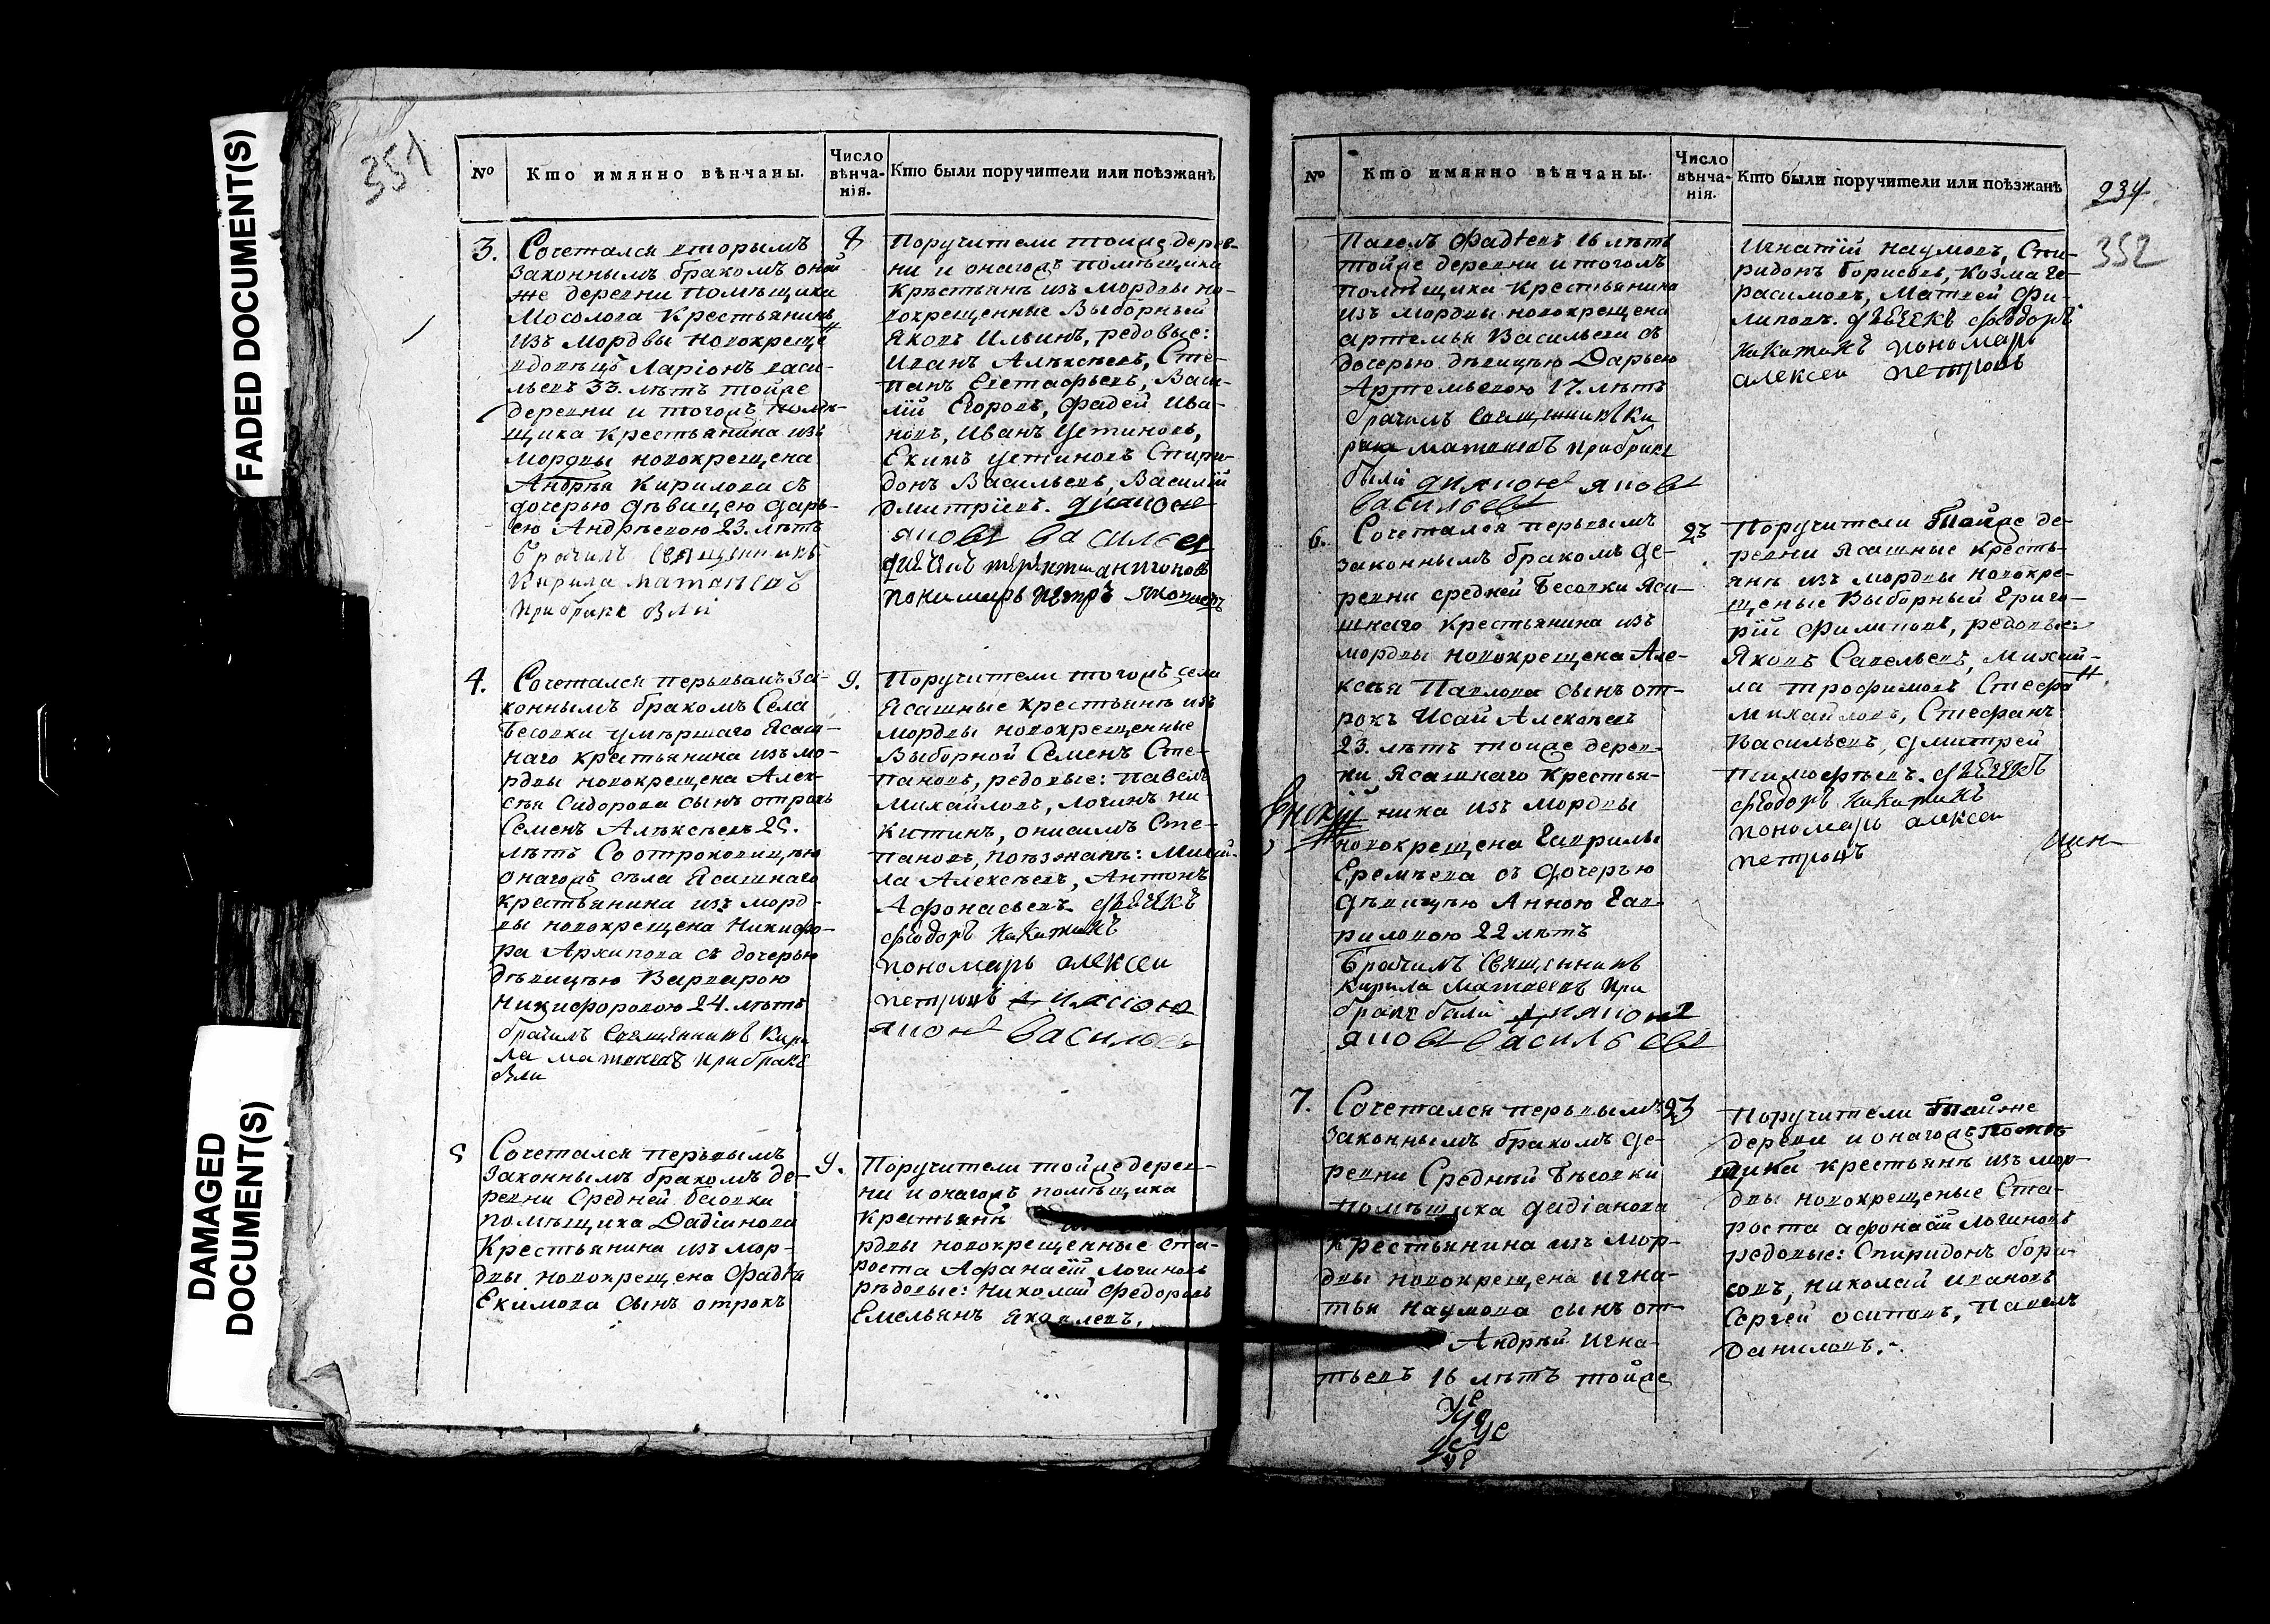 FADED DOCUMENT(S)
DAMAGED
DOCUMENT(S)
351
№
Кто имянно вѣнчаны.
Число
вѣнча-
нія.
Кто были поручители или поѣзжанѣ
3.
Сочетался вторымъ
законнымъ бракомъ оной
же деревни помѣщика
Мосолова крестьянинъ
изъ мордвы новокреще
вдовецъ Ларіонъ васи-
льевъ 33. лѣтъ тойже
деревни и тогожъ помѣ-
щика крестьянина изъ
мордвы новокрещена
Андрѣя Кирилова съ
дочерью дѣвицею дарь-
ею Андрѣевою 23. лѣтъ
Брачилъ священникъ
Кирила матвѣевъ
при браке были
8
Поручители тойже дерев-
ни и оногожъ помѣщика
крѣстьянѣ изъ мордвы но-
вокрещенные Выборный
Яковъ Ильинъ, редовые:
Иванъ Алѣксѣевъ, Сте-
панъ Евстафьевъ, Васи-
лій Егоровъ, Фадей Ива-
новъ, Иванъ Устиновъ,
Екимъ устиновъ Спири-
донъ Васильевъ, Василій
Дмитріевъ. диаконъ
яковъ васильев
пономарь петръ яковлевъ
4.
Сочетался перьвымъ за-
коннымъ бракомъ Села
Бесовки умѣршаго Ясаш-
наго крестьянина изъ мо-
рдвы новокрещена Алек-
сѣя Сидорова сынъ отрокъ
Семенъ Алѣксѣевъ 25.
лѣтъ Со отроковицѣю
оногожъ села Ясашнаго
крестьянина изъ морд-
вы новокрещена Никифо-
ра Архипова съ дочерью
дѣвицѣю Варварою
никифоровою 24. лѣтъ
брачилъ священникъ Кири
ла матвѣевъ при браке
были
9.
Поручители тогожъ села
Ясашные крестьянѣ изъ
мордвы новокрещенные
Выборной Семенъ Сте-
пановъ, редовые: павелъ
Михайловъ, логинъ ни-
китинъ, онисимъ Сте-
пановъ, поѣзжанѣ: Михай-
ла Алексѣевъ, Антонъ
Афонасьевъ дьячекъ
феодоръ никитинъ
пономарь алексеи
петровъ диаконъ
яковъ васильев
5
Сочетался перьвымъ
законнымъ бракомъ де-
ревни Средней Бесовки
помѣщика Дадіанова
крестьянина изъ мор-
двы новокрещена Фадѣя
Екимова сынъ отрокъ
9.
Поручители тойже дерев-
ни и оногожъ помѣщика
крестьянѣ
рдвы новокрещенные ста-
роста Афанасій Логиновъ
рѣдовые: Николай Федоровъ
Емельянъ Яковлевъ.
№
Кто имянно вѣнчаны.
Число
вѣнча-
нія.
Кто были поручители или поѣзжанѣ
234.
352
Павелъ Фадѣевъ 16 лѣтъ
тойже деревни и тогожъ
помѣщика крестьянина
изъ мордвы новокрещена
артемья Васильева съ
дочерью дѣвицѣю Дарьею
Артемьевою 17. лѣтъ
брачилъ священникъ Ки
рила матвѣевъ при браке
были диаконъ яковъ
васильевъ
Игнатій наумовъ, Спи-
ридонъ борисовъ, козма ге-
расимовъ, Матвей Фи-
липовъ. дьячекъ феодоръ
никитинъ пономарь
алексеи петровъ
6.
Сочетался перьвымъ
законнымъ бракомъ де-
ревни средней Бесовки Яса-
шнаго крестьянина изъ
мордвы новокрещена Але-
ксѣя Павлова сынъ от-
рокъ Исай Алексѣевъ
23. лѣтъ тойже дерев-
ни Ясашнаго крестья-
нина изъ мордвы
новокрещена Гаврилы
Еремѣева съ дочерью
дѣвицѣю Анною Гав-
риловою 22 лѣтъ
Брачилъ Священникъ
Кирила Матвеевъ при
браке были диаконъ
яковъ васильевъ
23
Поручители тойже де-
ревни Ясашные кресть-
янѣ изъ мордвы новокре-
щеные Выборный Григо-
рій Филиповъ, редовые:
Яковъ Савельевъ, Михай-
ла трофимовъ Стефа
михайловъ, Стефанъ
Васильевъ, дмитрей
тимофѣевъ. дьячекъ
феодоръ никитинъ
пономарь алексеи
петровъ
7.
Сочетался перьвымъ
законнымъ бракомъ де-
ревни Средней Бѣсовки
помѣщика дадіанова
крестьянина изъ мор-
двы новокрещена игна-
тья наумова сынъ от-
Андрѣй Игна-
тьевъ 16 лѣтъ тойже
23
Поручители тойже
деревни и оногожъ помѣ
щика крестьянѣ изъ мор-
двы новокрещеные Ста-
роста афонасій логиновъ
редовые: Спиридонъ бори-
совъ, николай ивановъ
Сергей осиповъ, павелъ
Даниловъ.